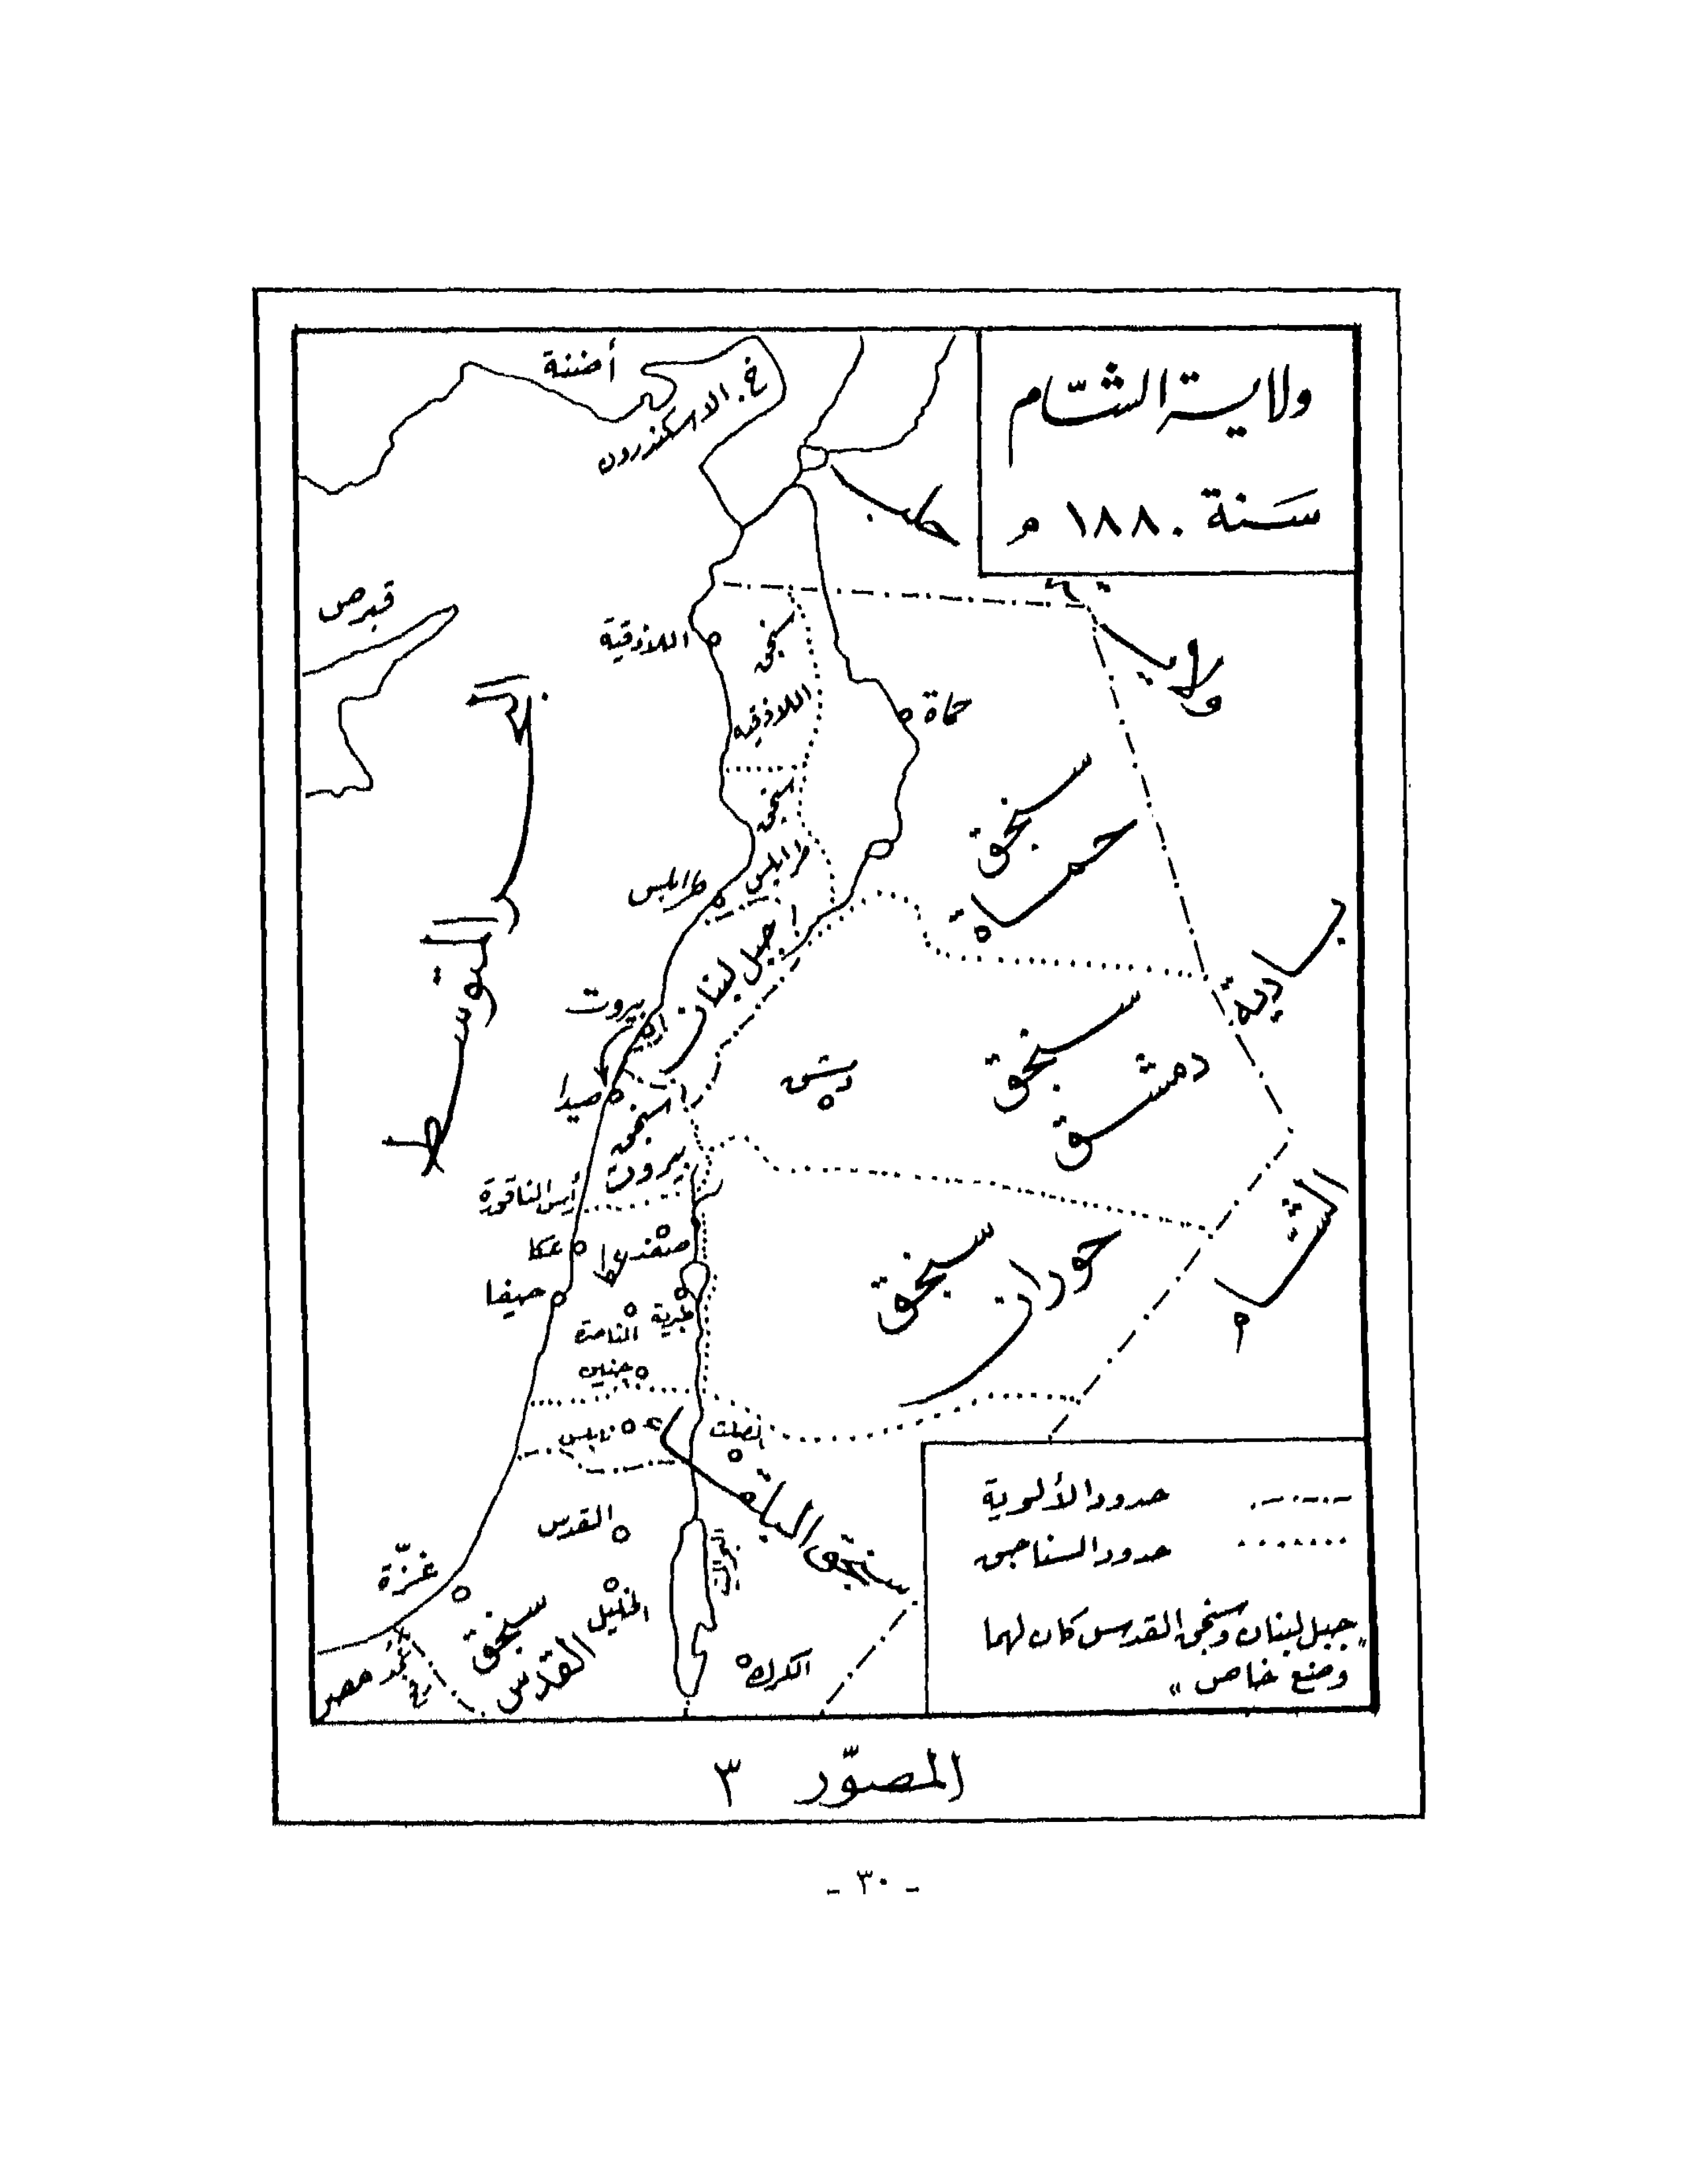 ولاية الشّام
سَنة ١٨٨٠ م
أضنة
خ. الاسكندرون
حلب
ولاية
قبرص
اللاذقية
سنجق
اللاذقية
حماة
البحر
المتوسط
سنجق
طرابلس
طرابلس
سنجق
حماة
جبل لبنان
بادية
الشام
بيروت
صيدا
سنجق
بيروت
دمشق
سنجق
دمشق
رأس الناقورة
عكا
صفد
حيفا
طبرية
الناصرة
جنين
سنجق
حوران
نابلس
الصلت
سنجق البلقاء
القدس
غزّة
الخليل
سنجق
القدس
الكرك
رفح
حدود الألوية
حدود السناجق
"جبل لبنان وسنجق القدس كان لهما
وضع خاص"
المصوّر ٣
- ٣٠ -